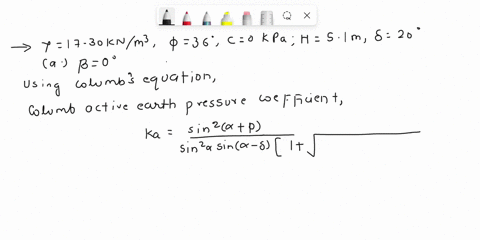 → γ = 17.30 KN/m³, ϕ = 36°, C = 0 KPa ; H = 5.1 m, δ = 20°
(a.) β = 0°
Using Columb's equation,
Columb active earth pressure coefficient,
Ka = sin²(α+ρ) / sin²α sin(α-δ) [ 1+ √